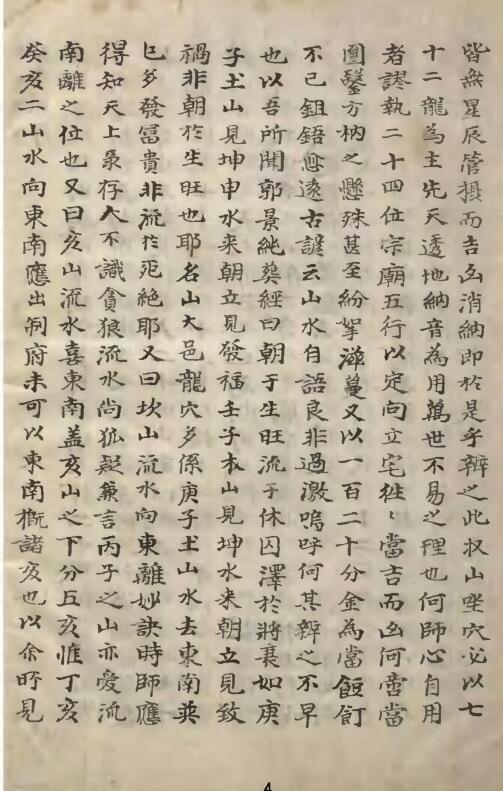 皆無星辰管攝而吉凶消納即於是乎辨之此収山坐穴必以七
十二龍為主先天透地納音為用萬世不易之理也何師心自用
者謬執二十四位宗廟五行以定向立宅徃〻當吉而凶何啻當
圓鑿方枘之懸殊甚至紛挐滋蔓又以一百二十分金為當餖飣
不已鉏鋙愈遠古諺云山水自語良非過激嗚呼何其辨之不早
也以吾所聞郭景純葬經曰朝于生旺流于休囚澤於將衰如庚
子土山見坤申水来朝立見發福壬子木山見坤水来朝立見致
禍非朝於生旺也耶名山大邑龍穴多係庚子土山水去東南巽
巳多發富貴非流於死絕耶又曰坎山流水向東離妙訣時師應
得知天上彖存人不識貪狼流水尚狐疑兼言丙子之山亦愛流
南離之位也又曰亥山流水喜東南盖亥山之下分五亥惟丁亥
癸亥二山水向東南應出制府未可以東南概諸亥也以余所見
4